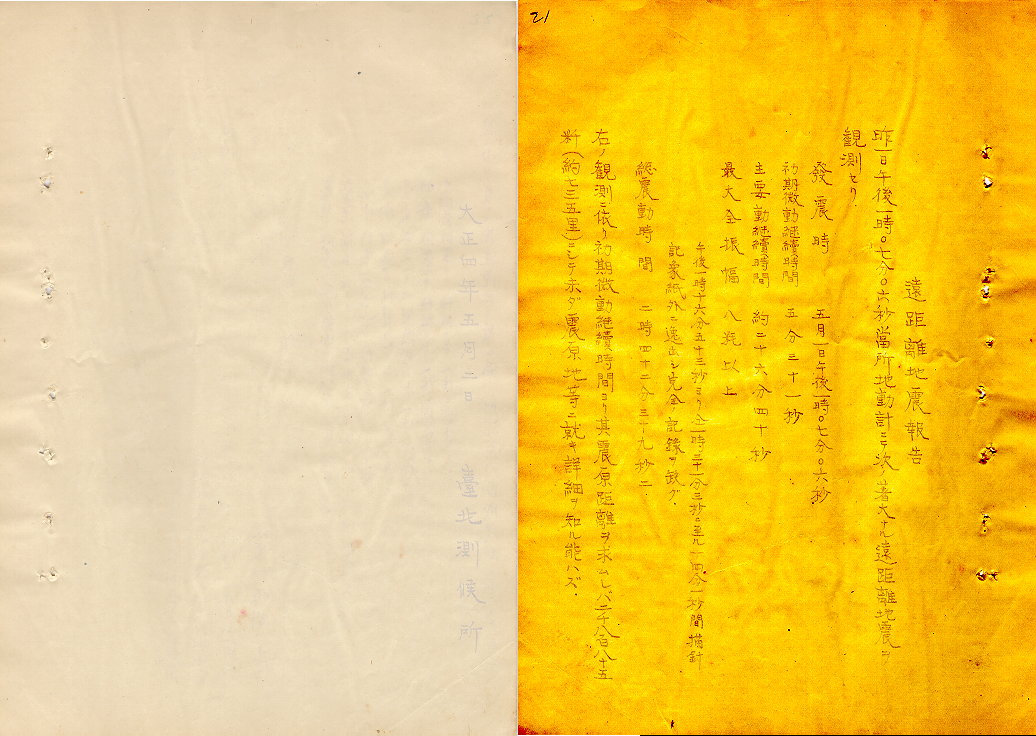 21
遠距離地震報告
昨一日午後一時〇七分〇六秒當所地動計ニテ次ノ著大ナル遠距離地震ヲ
観測セリ、
發震時 五月一日午後一時〇七分〇六秒
初期微動継續時間 五分三十一秒
主要動継續時間 約二十六分四十秒
最大全振幅 八粍以上
午後一時十六分五十三秒ヨリ仝一時三十一分三秒ニ至ル 四分一秒間描針
記象紙外ニ逸出シ完全ノ記録ヲ缺グ、
総震動時間 二時四十二分三十九秒ニ
右ノ観測ニ依リ初期微動継續時間ヨリ其震原距離ヲ求ムレバ二千八百八十五
粁(約七三五里)ニシテ未ダ震原地等ニ就キ詳細ヲ知ル能ハズ、
大正四年五月二日 臺北測候所